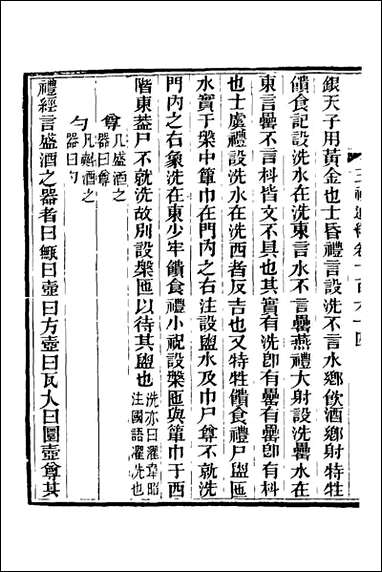 銀天子用黃金也士昏禮言設洗不言水鄉飲酒鄉射特牲
饋食記設洗水在洗東言水不言罍燕禮大射設洗罍水在
東言罍不言枓皆文不具也其實有洗卽有罍有罍卽有枓
也士虞禮設洗水在洗西者反吉也又特牲饋食禮尸盥匜
水實于槃中簞巾在門內之右注設盥水及巾尸尊不就洗
門內之右象洗在東少牢饋食禮小祝設槃匜與簞巾于西
階東葢尸不就洗故別設槃匜以待其盥也洗亦曰濯韋昭注國語濯洗也
尊凡盛酒之器曰尊
勺凡㪺酒之器曰勺
禮經言盛酒之器者曰甒曰壺曰方壺曰瓦大曰圜壺尊其